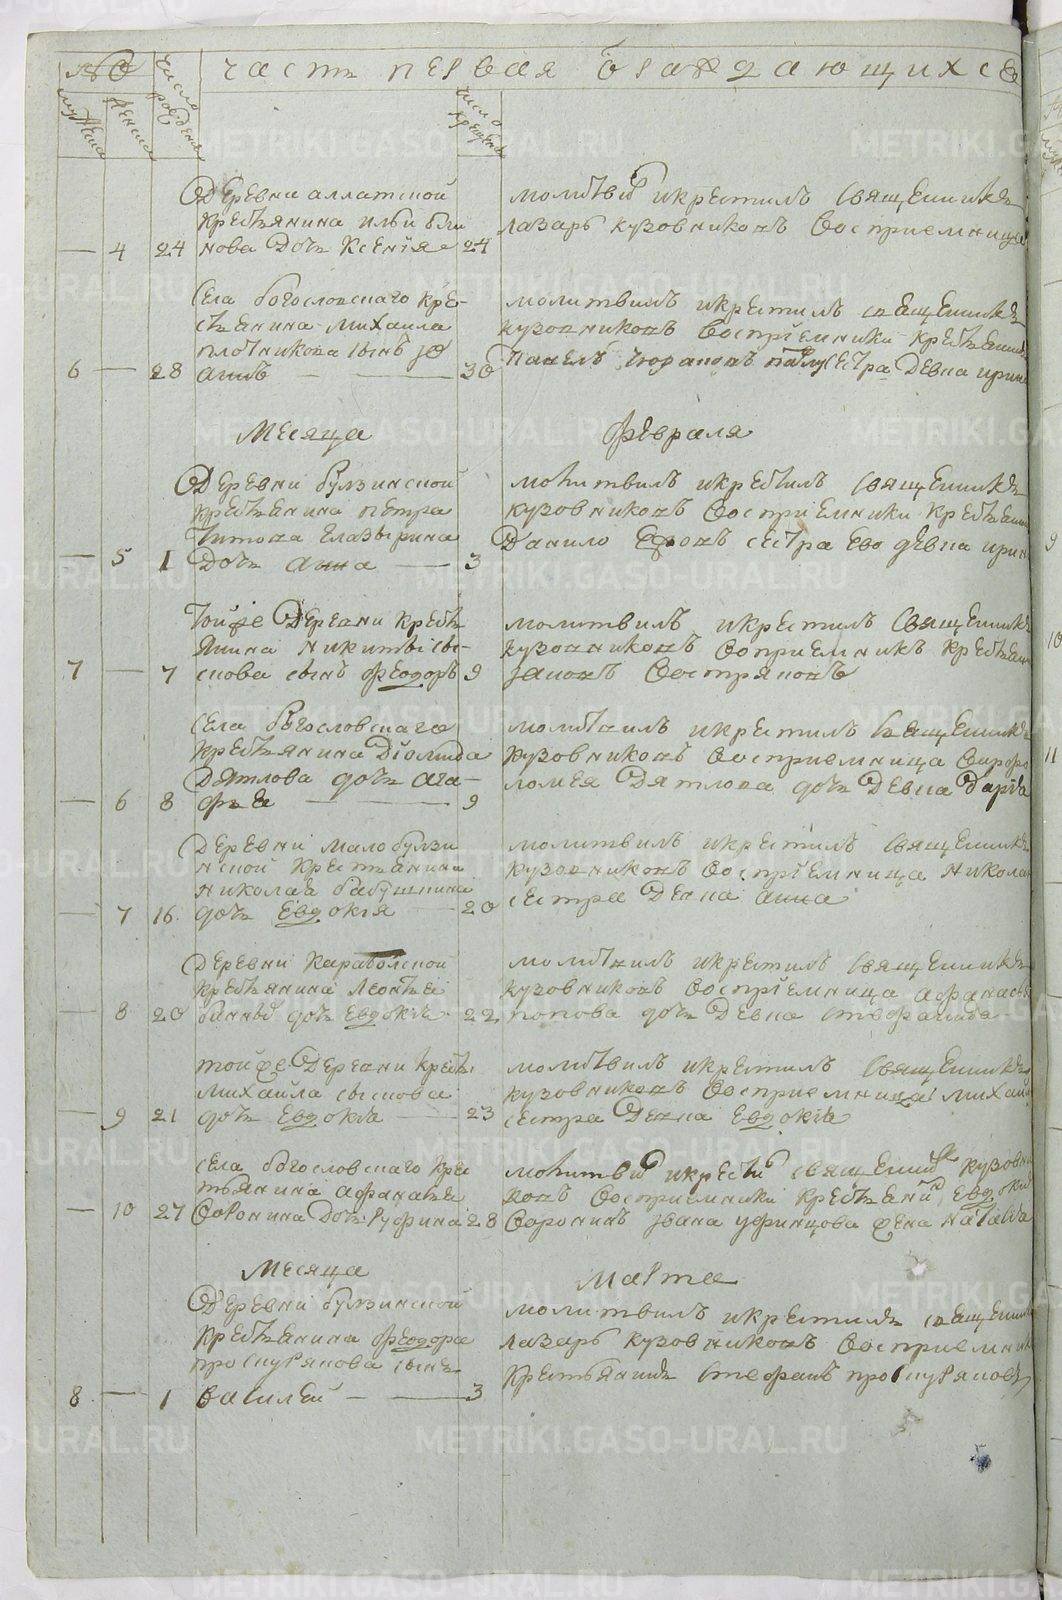 №
Число рожденiя
часть первая о раждающихся
мужеска
женска
число крещенiя
Деревни аллатской
крестьянина ильи
— 4 24 нова дочь Ксенiя 24
молитвил и крестилъ священникъ
лазарь кузовниковъ восприемница
Села богословскаго кре-
стьянина михаила
плотникова сынъ io
6 — 28 аннъ — 30
молитвилъ и крестилъ священникъ
кузовниковъ восприемники крестьянинъ
павелъ сестра девка ирина
Месяца Февраля
Деревни булзинской
крестьянина петра
титова глазырина
— 5 1 дочь анна — 3
молитвилъ и крестилъ священникъ
кузовниковъ восприемники крестьянинъ
данило сестра ево девка ирина
тойже деревни кресть
янина никиты сы-
7 — 7 скова сынъ феодоръ 9
молитвилъ и крестилъ священникъ
кузовниковъ восприемникъ крестьянинъ
востряковъ
Села богословскаго
крестьянина Дiомида
Дятлова дочь ага-
— 6 8 фья — 9
молитвилъ и крестилъ священникъ
кузовниковъ восприемница варфо
ломея Дятлова дочь девка дарья
Деревни малобулзи
нской крестьянина
николая бабушкина
— 7 16 дочь Евдокiя — 20
молитвилъ и крестилъ священникъ
кузовниковъ восприемница никола
сестра девка анна
Деревни караболской
крестьянина леонтья
— 8 20 дочь Евдокiя 22
молитвилъ и крестилъ священникъ
кузовниковъ восприемница афанасья
попова дочь девка стефанида
тойже деревни кресть
михаила сыскова
— 9 21 дочь Евдокiя — 23
молитвилъ и крестилъ священникъ
кузовниковъ восприемница михаи
сестра девка Евдокiя
села богословскаго кре
стьянина афанасья
— 10 27 воронина дочь руфина 28
молитвил и крестил священник кузовни
ковъ восприемники крестьянин
воронинъ iвана уфинцова жена наталья
Месяца Марта
Деревни булзинской
крестьянина феодора
проскурякова сынъ
8 — 1 василей — 3
молитвилъ и крестилъ священникъ
лазарь кузовниковъ восприемникъ
крестьянинъ стефанъ проскуряковъ
9
10
11
METRIKI.GASO-URAL.RU